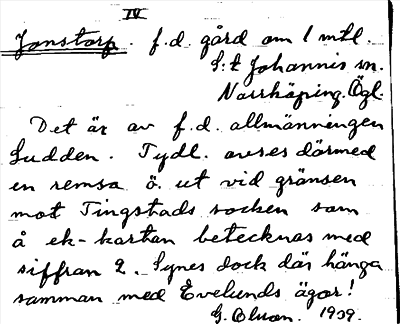 IV
Jonstorp. f.d. gård om 1 mtl.
S:t Johannis sn.
Norrköping. Ögl.
Det är av f.d. allmänningen
Ludden. Tydl. avses därmed
en remsa ö. ut vid gränsen
mot Tingstads socken som
å ek-kartan betecknas med
siffran 2. Synes dock där hänga
samman med Evelunds ägor!
G. Olson. 1939.